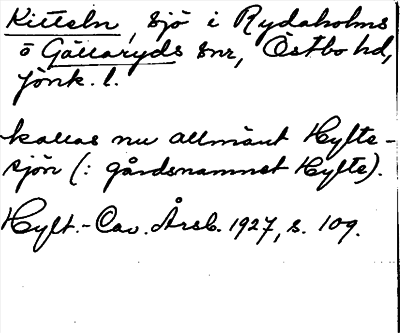 Kitteln, sjö i Rydaholms
o Gällaryds snr, Östbo hd,
Jönk. l.
kallas nu allmänt Hylte-
sjön (: gårdsnamnet Hylte).
Hylt.-Cav. Årsb. 1927, s. 109.